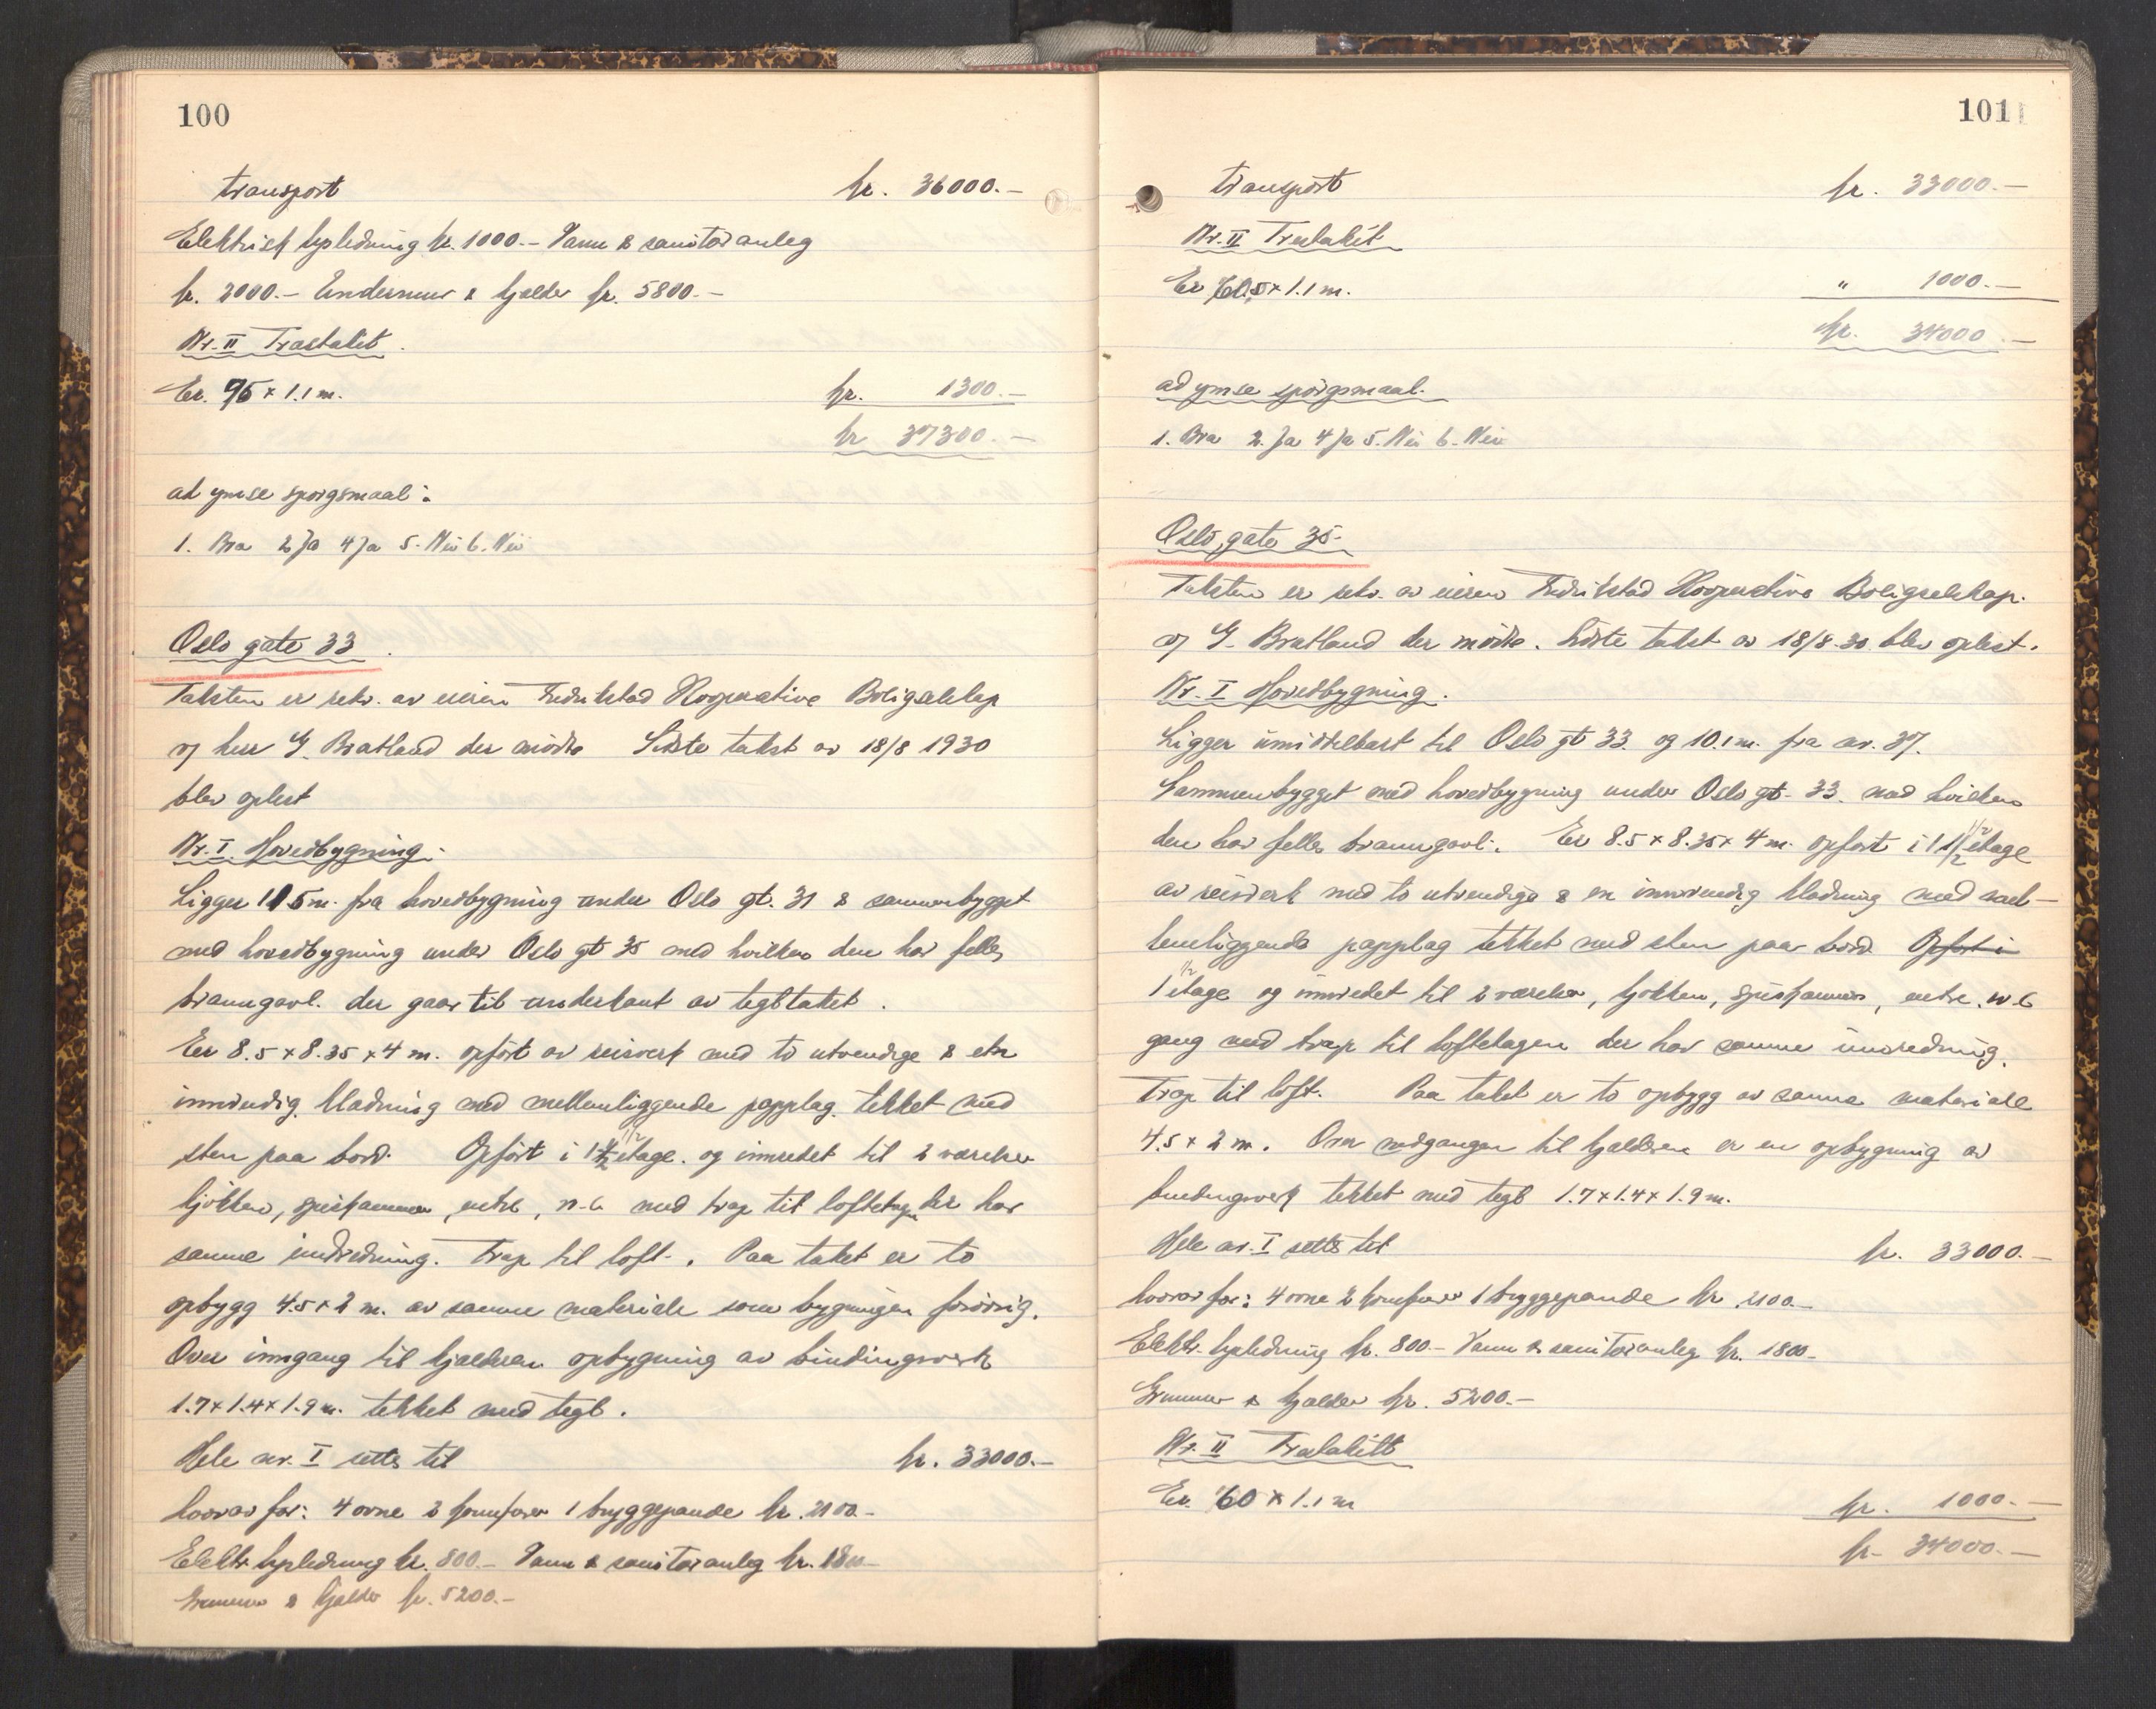 100
transport kr. 36000.-
Elektrisk lysledning kr. 1000.- Vann & sanitæranleg
kr. 2000.- Undermur & kjelder kr. 5800.-
Nr. II Trastakit.
Er. 75 x 1.1 m. kr. 1300.-
kr 37300.-
ad ymse spørgsmaal:
1. Bra 2 Ja 4 Ja 5. Nei 6. Nei
Oslo gate 33.
Taksten er rekv. av eieren Fredrikstad Kooperative Boligselskap
og herr G. Bratland der møtte Siste takst av 18/8 1930
blev oplest
Nr. I. Hovedbygning.
Ligger 11 5 m. fra hovedbygning under Oslo gt. 31 & sammenbygget
med hovedbygning under Oslo gt 35 med hvilken den har felles
branngavl. der gaar til underkant av tegltaket.
Er 8.5 x 8.35 x 4 m. opført av reisverk med to utvendige & en
innvendig kladning med mellemliggende papplag tekket med
sten paa bord. Opført i 1 1/2 etage. og innredet til 2 værelser
kjøkken, spiskammer, entre, w.c. med trap til loftetagen der har
samme indredning. Trap til loft. Paa taket er to
opbygg 4.5 x 2 m. av samme materiale som bygningen forøvrig.
Over inngang til kjelderen opbygning av bindingsverk
1.7 x 1.4 x 1.9 m. tekket med tegl.
Hele nr. I settes til kr. 33000.-
hvorav for: 4 ovne 2 komfyrer 1 bryggepande kr. 2100.-
Elektr. lysledning kr. 800.- Vann & sanitæranleg kr. 1800-
Grunmur & kjelder kr. 5200.-
101
transport kr. 33000.-
Nr. II Trestakit
Er 60.5 x 1.1 m. " 1000.-
kr. 34000.-
ad ymse spørgsmaal.
1. Bra 2. Ja 4 Ja 5. Nei 6. Nei
Oslo gate 35.
Taksten er rekv. av eieren Fredrikstad Kooperative Boligselskap.
og G. Bratland der møtte. Siste takst av 18/8.30. blev oplest.
Nr. I Hovedbygning.
Ligger umiddelbart til Oslo gt 33. og 10.1 m. fra nr. 37.
Sammenbygget med hovedbygning under Oslo gt. 33. med hvilken
den har felles branngavl. Er 8.5 x 8.35 x 4 m. opført i 1 1/2 etage
av reisverk med to utvendige & en innvendig kladning med mel-
lemliggende papplag tekket med sten paa bord. Opført i
1 1/2 etage og innredet til 2 værelser, kjøkken, spiskammer, entre, w.c
gang med trap til loftetagen der har samme innredning.
Trap til loft. Paa taket er to opbygg av samme materiale
4.5 x 2 m. Over nedgangen til kjelderen er en opbygning av
bindingsverk tekket med tegl 1.7 x 1.4 x 1.9 m.
Hele nr. I settes til kr. 33000.-
hvorav for: 4 ovne 2 komfyrer 1 bryggepande kr. 2100.-
Elektr. lysledning kr. 800.- Vann & sanitæranleg kr. 1800-
Grunmur & kjelder kr. 5200.-
Nr. II Trestakitt
Er. 60 x 1.1 m kr. 1000.-
kr. 34000.-